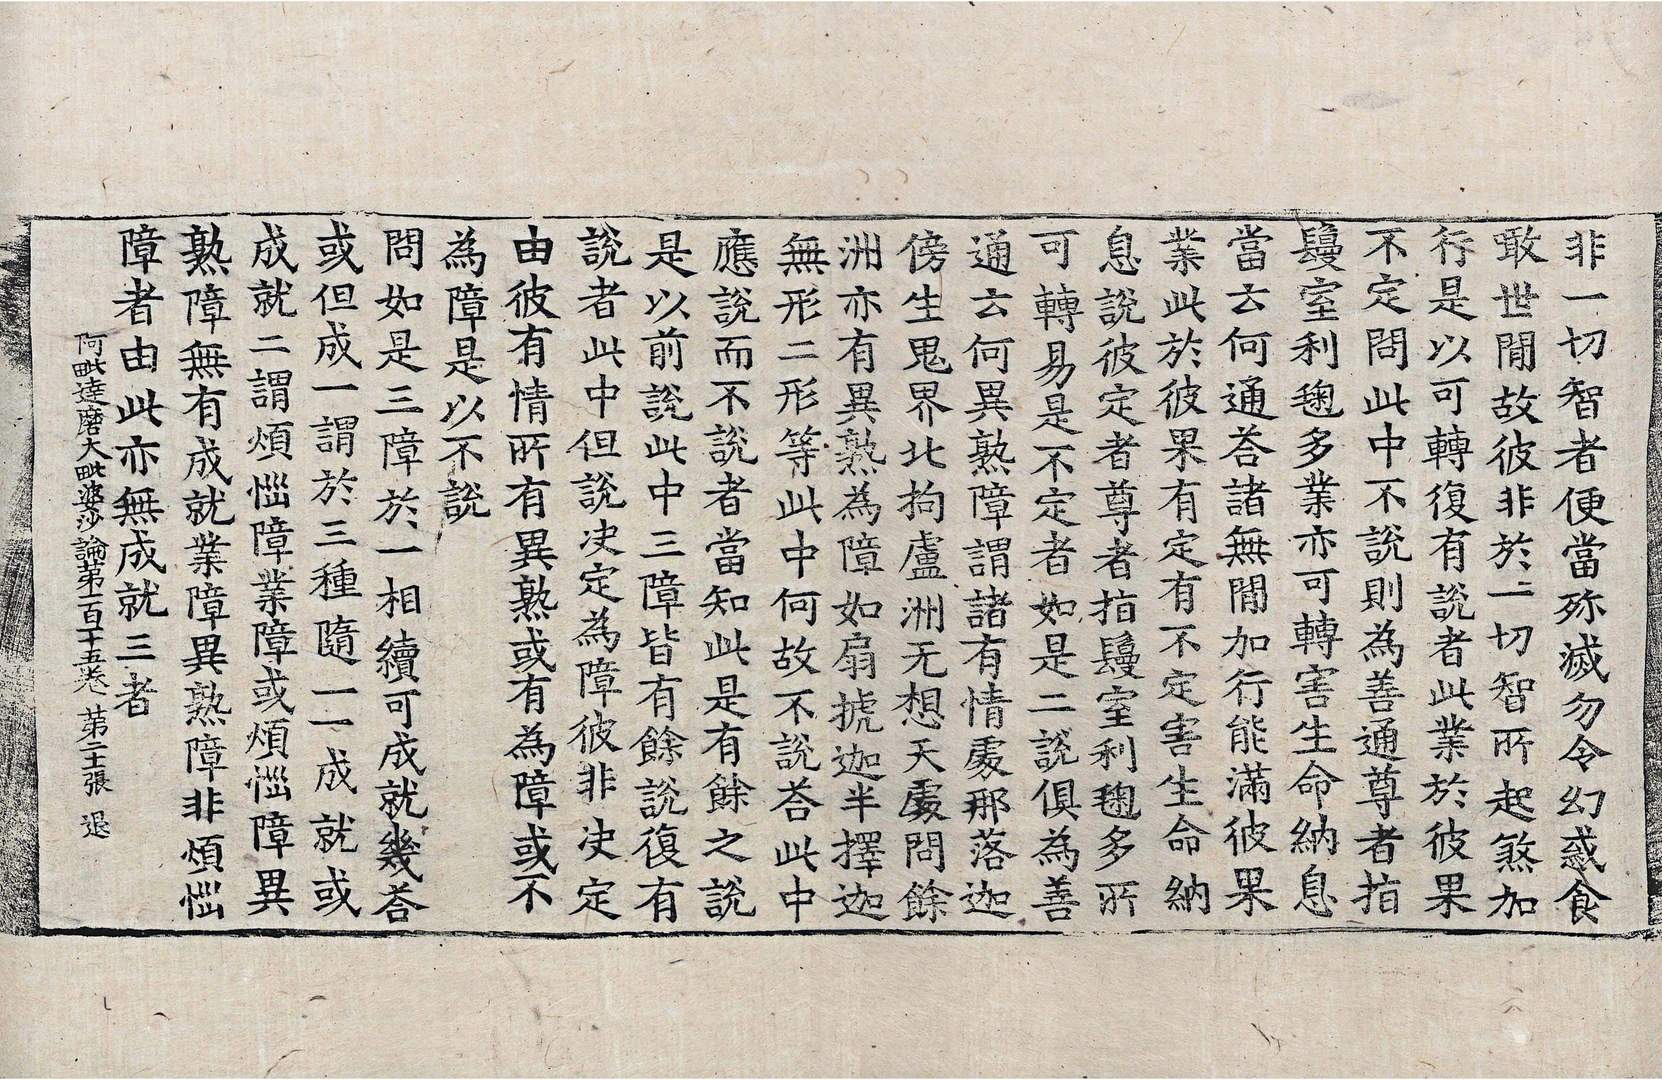 非一切智者便當殄滅勿令幻惑食
敢世閒故彼非於一切智所起煞加
行是以可轉復有說者此業於彼果
不定問此中不說則為善通尊者指
鬘室利毱多業亦可轉害生命納息
當云何通荅諸無閒加行能滿彼果
業此於彼果有定有不定害生命納
息說彼定者尊者指鬘室利毱多所
可轉易是不定者如是二說俱為善
通云何異熟障謂諸有情處那落迦
傍生鬼界北拘盧洲无想天處問餘
洲亦有異熟為障如扇搋迦半擇迦
無形二形等此中何故不說荅此中
應說而不說者當知此是有餘之說
是以前說此中三障皆有餘說復有
說者此中但說决定為障彼非决定
由彼有情所有異熟或有為障或不
為障是以不說
問如是三障於一相續可成就幾荅
或但成一謂於三種隨一一成就或
成就二謂煩惱障業障或煩惱障異
熟障無有成就業障異熟障非煩惱
障者由此亦無成就三者
阿毗達磨大毗婆沙論苐一百十五卷 苐二十張 退